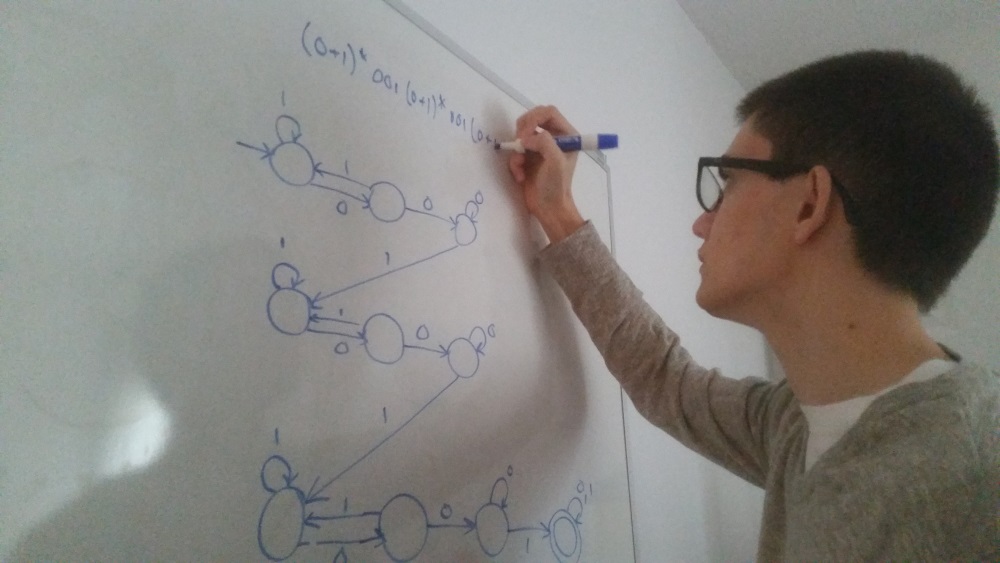 (0+1)* 001 (0+1)* 001 (0+1
1
1
0
0
0
1
1
1
0
0
0
1
1
1
0
0
0
1
0,1